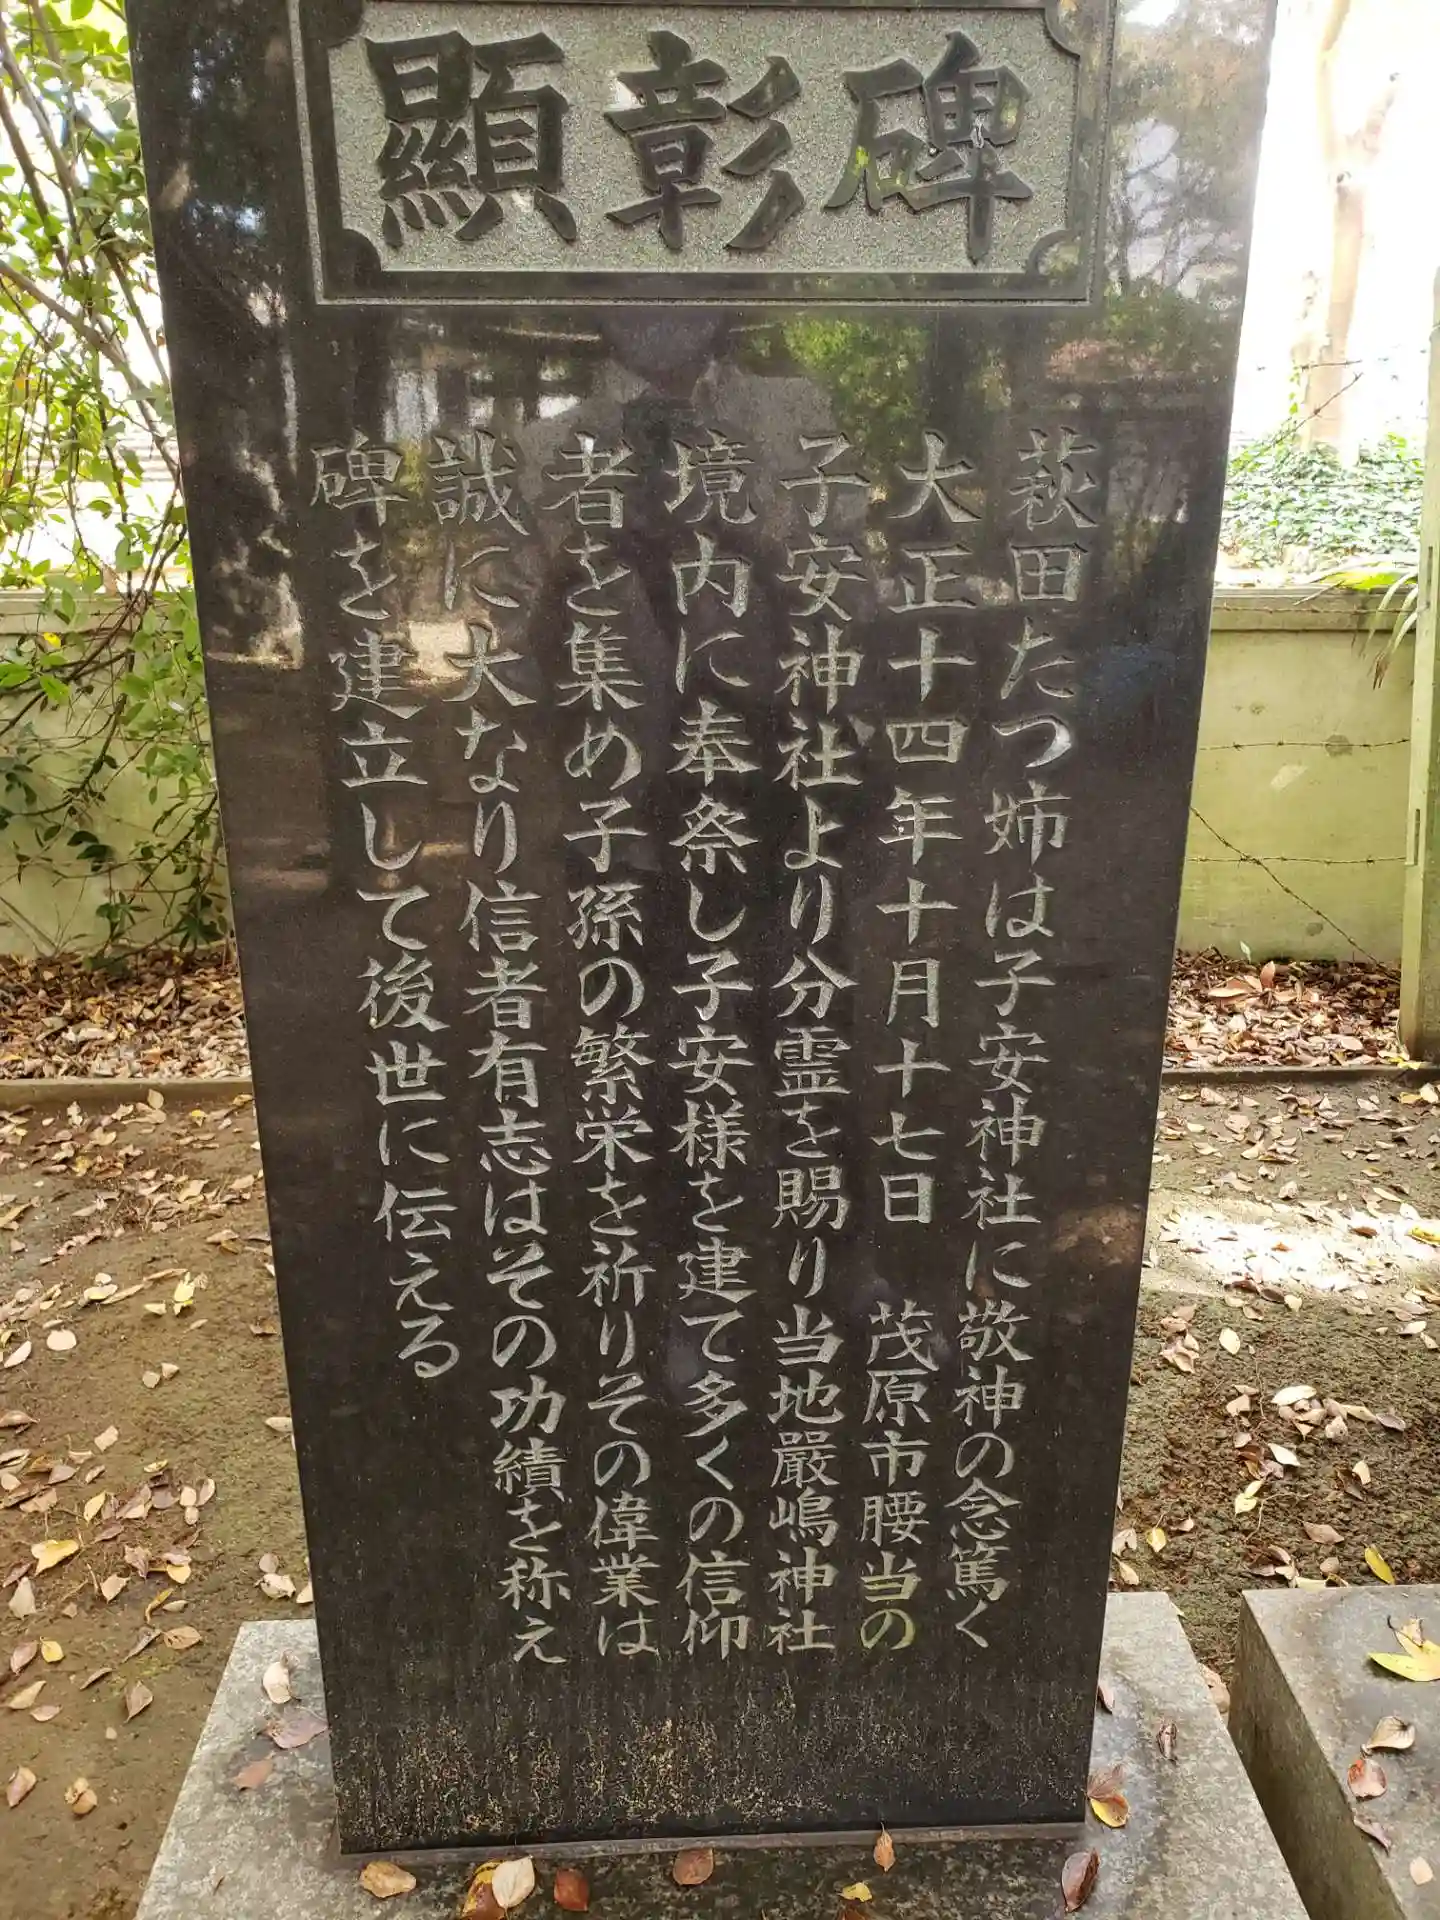 顯彰碑
萩田たつ姉は子安神社に敬神の念篤く
大正十四年十月十七日 茂原市腰当の
子安神社より分霊を賜り当地嚴嶋神社
境内に奉祭し子安様を建て多くの信仰
者を集め子孫の繁栄を祈りその偉業は
誠に大なり信者有志はその功績を称え
碑を建立して後世に伝える